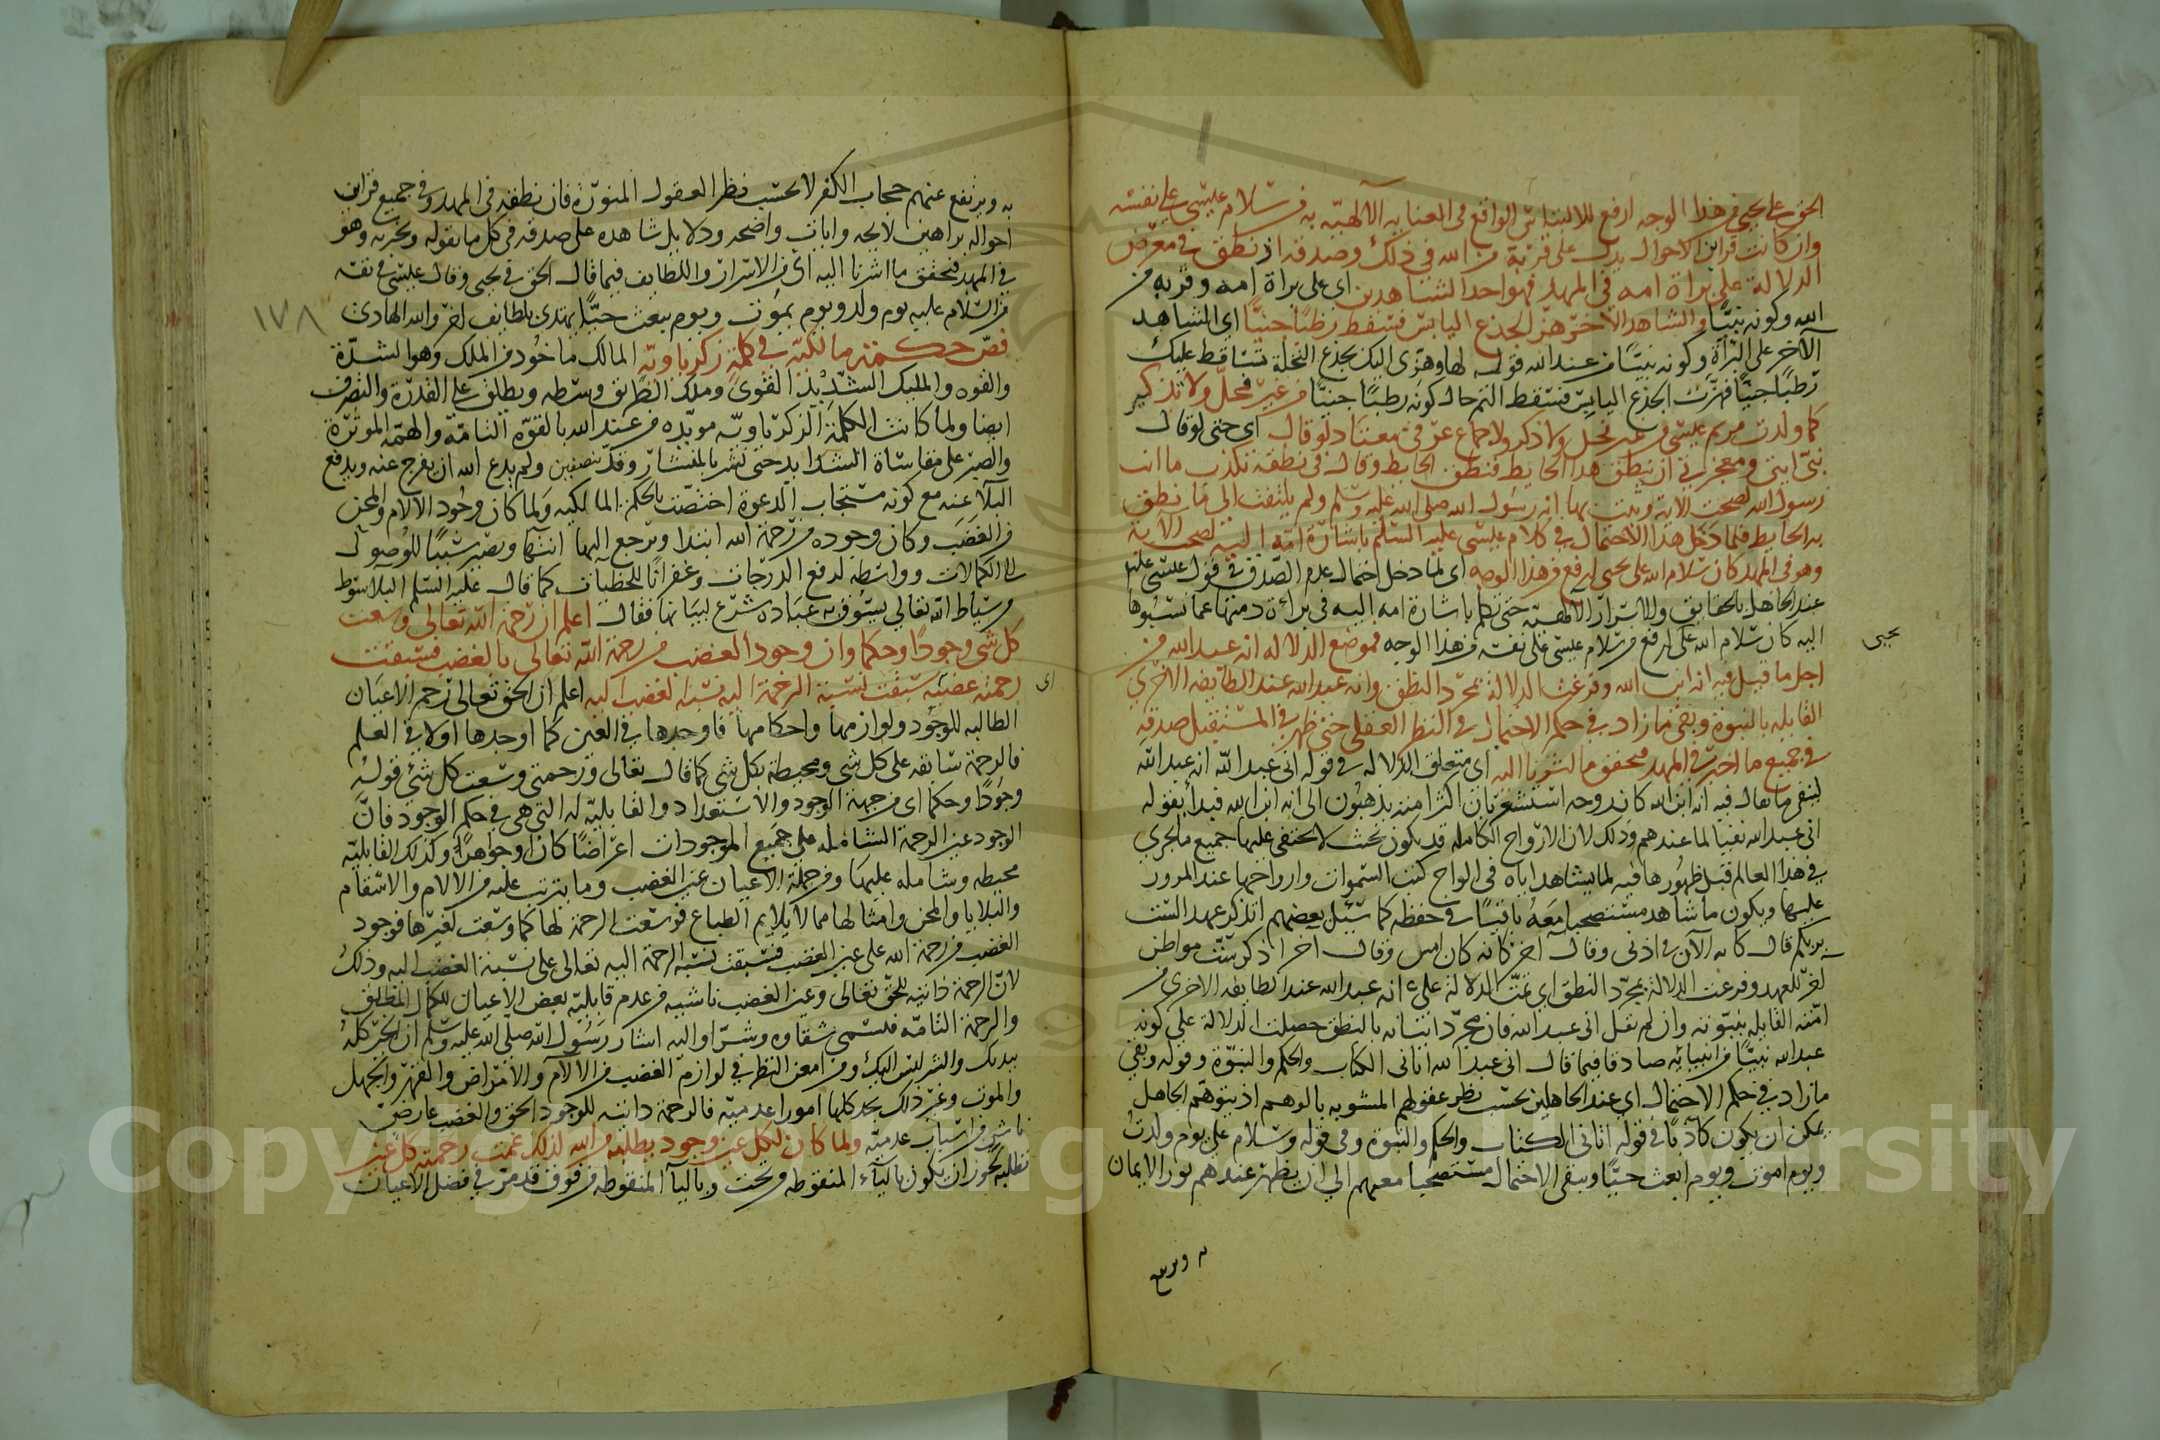 الحق على يحيى من هذا الوجه ارفع للالتباس الواقع فى العناية الالهية به من سلام عيسى على نفسه
وان كانت قراين الاحوال تدل على قربة من الله فى ذلك وصدقه اذ نطق فى معرض
الدلالة على براة امه فى المهد فهو احد الشاهدين اى على براة امه وقربه من
الله وكونه نبيا والشاهد الاخر هز الجذع اليابس فسقط رطبا جنيا اى الشاهد
الآخر على البرآة وكونه نبيا من عند الله قوله لها وهزى اليك بجذع النخلة تساقط عليك
رطبا جنيا فهزت الجذع اليابس فسقط التمر حال كونه رطبا جنيا من غير فحل ولا تذكير
كما ولدت مريم عيسى من غير فحل ولا ذكر ولا جماع عرفى معتاد لو قال اى حتى لو قال
نبى ايتى ومعجزتى ان ينطق هذا الحايط فنطق الحايط وقال فى نطقه تكذب ما انت
رسول الله لصحت الاية وثبت بها انه رسول الله صلى الله عليه وسلم ولم يلتفت الى ما نطق
به الحايط فلما دخل هذا الاحتمال فى كلام عيسى عليه السلم باشارة امه اليه
وهو فى المهد كان سلام الله على يحيى ارفع من هذا الوجه اى لما دخل احتمال عدم الصدق فى قول عيسى
عند الجاهل بالحقايق والاسرار الالهية حتى تكلم باشارة امه اليه فى براءة ذمتها عما نسبوها
اليه كان سلام الله على ارفع من سلام عيسى على نفسه من هذا الوجه فموضع الدلالة انه عبد الله من
يحيى
اجل ما قيل فيه انه ابن الله وفرغت الدلالة بمجرد النطق وانه عبد الله عند الطايفة الاخرى
القابله بالنبوة وبقى ما زاد فى حكم الاحتمال فى النظر العقلى حتى ظهر فى المستقبل صدقه
فى جميع ما اخبر فى المهد فتحقق ما اشرنا اليه اى متعلق الدلاله فى قوله انى عبد الله انه عبد الله
لينفى ما يقال فيه انه ابن الله كان روحه استشعرت بان اكثر امته يذهبون الى انه ابن الله فبدأ بقوله
انى عبد الله نفيا لما عندهم وذلك لان الارواح الكامله قد يكون بحيث لا يختفى عليها جميع ما يجرى
فى هذا العالم قبل ظهورها فيه لما يشاهد اياه فى الواح كتب السموات وارواحها عند المرور
عليها ويكون ما شاهد مستصحبا معه باقيا فى حفظه كما سئل بعضهم اتذكر عهد الست
بربكم قال كانه الآن فى اذنى وقال اخر كانه كان امس وقال اخر اذكر ستة مواطن
اخر للعهد وفرغت الدلالة بمجرد النطق اى تمت الدلالة على انه عبد الله عند الطايفة الاخرى من
امته القايله بنبوته وان لم نقل انى عبد الله فان مجرد اتيانه بالنطق حصلت الدلالة على كونه
عبد الله نبيا من انبيائه صادقا فيما قال انى عبد الله اتانى الكتاب والحكم والنبوة وقوله وبقى
ما زاد فى حكم الاحتمال اى عند الجاهلين بحسب نظر عقولهم المشوبه بالوهم اذ يتوهم الجاهل
يمكن ان يكون كاذبا فى قوله اتانى الكتاب والحكم والنبوة وفى قوله وسلام على يوم ولدت
ويوم اموت ويوم ابعث حيا ويبقى الاحتمال مستصحبا معهم الى ان يظهر عندهم نور الايمان
به ويرتفع
به ويرتفع عنهم حجاب الكفر لا بحسب نظر العقول المنورة فان نطقه فى المهد وفى جميع قراين
احواله براهين لايحه وايات واضحه ودلايل شاهده على صدقه فى كل ما يقوله ويخبر به وهو
فى المهد فتحقق ما اشرنا اليه اى من الاسرار واللطايف فيما قال الحق فى يحيى وقال عيسى فى نفسه
من السلام عليه يوم ولد ويوم يموت ويوم يبعث حيا يهتدى بلطايف اخر والله الهادى
١٧٨
فص حكمة مالكية فى كلمة زكرياوية المالك ماخود من الملك وهو الشدة
والقوه والمليك الشديد القوى وملك الطريق وسطه ويطلق على القدرة والتصرف
ايضا ولما كانت الكلمة الزكرياوية مويده من عند الله بالقوة التامة والهمة الموثرة
والصبر على مقاساة الشدايد حتى نشر بالمنشار وقد بنصفين ولم يدع الله ان يفرج عنه ويدفع
البلآ عنه مع كونه مستجاب الدعوة اختصت بالحكمة المالكيه ولما كان وجود الالام والمحن
من الغضب وكان وجوده من رحمة الله ابتدا وترجع اليها انتها ويصير سببا للوصول
الى الكمالات وواسطة لرفع الدرجات وغفرانا للخطيات كما قال عليه السلم البلا سوط
من سياط الله تعالى يسوق به عباده شرع لبيانها فقال اعلم ان رحمة الله تعالى وسعت
كل شى وجودا وحكما وان وجود الغضب من رحمة الله تعالى بالغضب فسبقت
رحمته غضبه اى سبقت نسبة الرحمة اليه نسبة الغضب اليه اعلم ان الحق تعالى رحم الاعيان
الطالبه للوجود ولوازمها واحكامها فاوجدها فى العين كما اوجدها اولا فى العلم
فالرحمة سابقه على كل شى ومحيطة بكل شى كما قال تعالى ورحمتى وسعت كل شئ قوله
وجودا وحكما اى من جهة الوجود والاستعداد والقابلية له التى هى فى حكم الوجود فان
الوجود عين الرحمة الشامله على جميع الموجودات اعراضا كان او جواهرا وكذلك القابلية
محيطه وشامله عليها ومن جملة الاعيان عين الغضب وما يترتب عليه من الالام والاسقام
والبلايا والمحن وامثالها مما لا يلايم الطباع فوسعت الرحمة لها كما وسعت لغيرها فوجود
الغضب من رحمة الله على عين الغضب فسبقت نسبة الرحمة اليه تعالى على نسبة الغضب اليه وذلك
لان الرحمة ذاتية للحق تعالى وعين الغضب ناشيه من عدم قابلية بعض الاعيان للكمال المطلق
والرحمة التامه فيسمى شقاوه وشرا واليه اشار رسول الله صلى الله عليه وسلم ان الخير كله
بيديك والشر ليس اليك ومن امعن النظر فى لوازم الغضب من الآلام والامراض والفقر والجهل
والموت وغير ذلك يجد كلها امورا عدمية فالرحمة ذاتيه للوجود الحق والغضب عارض
ناشئ من اسباب عدمية ولما كان لكل عين وجود يطلبه من الله لذلك عمت رحمته كل عين
تطلبه يجوز ان يكون بالياء المنقوطه من تحت وبالتآ المنقوطه من فوق قد مر فى فصل الاعيان
Copyright © King Saud University